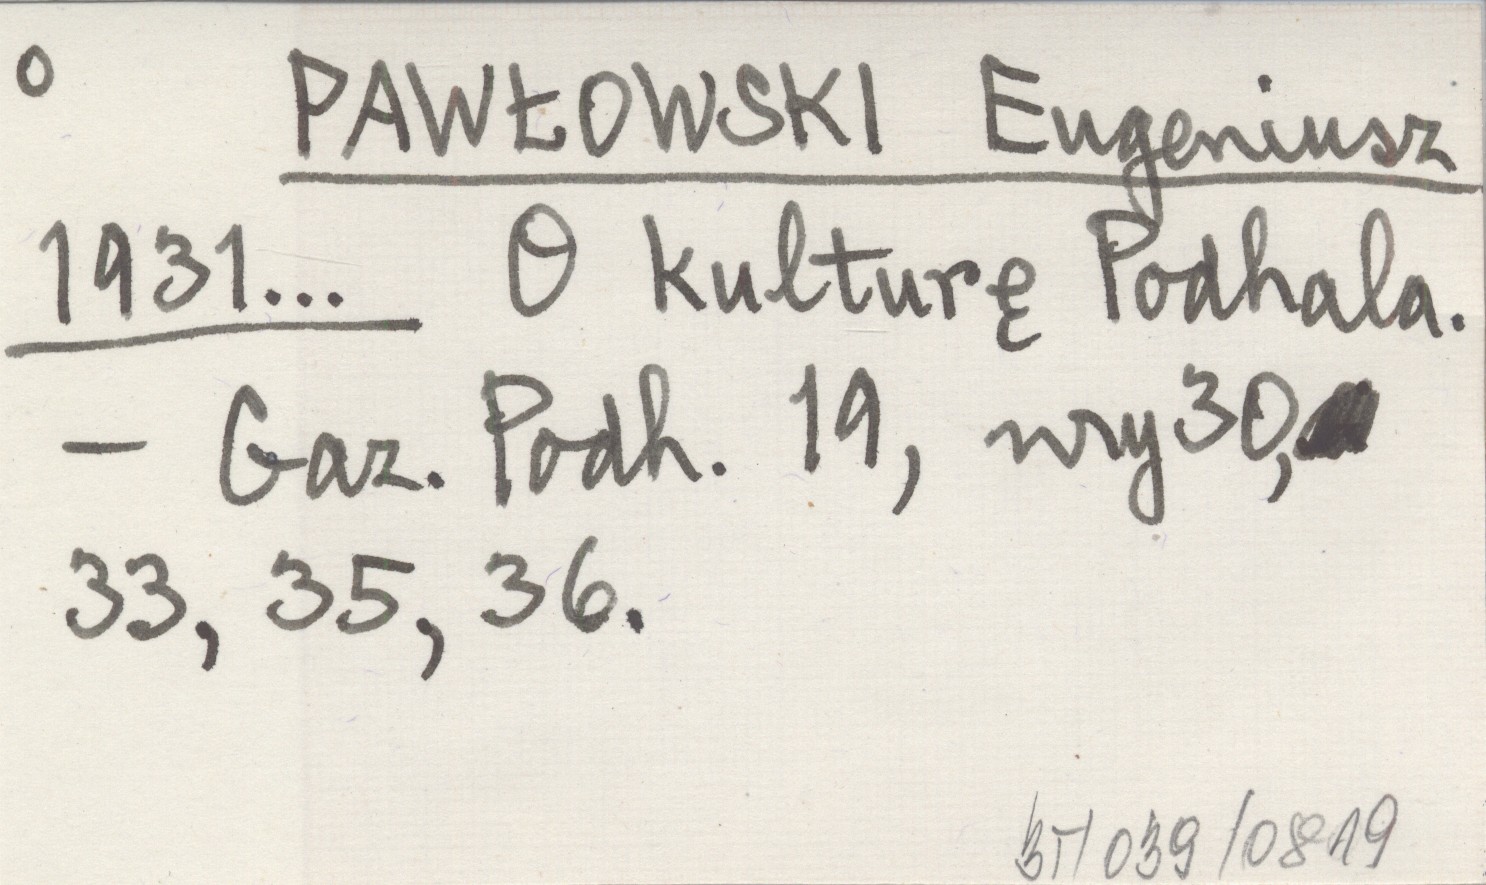 o PAWŁOWSKI Eugeniusz
1931... O kulturę Podhala.
— Gaz. Podh. 19, nry 30,
33, 35, 36.
/039/0819